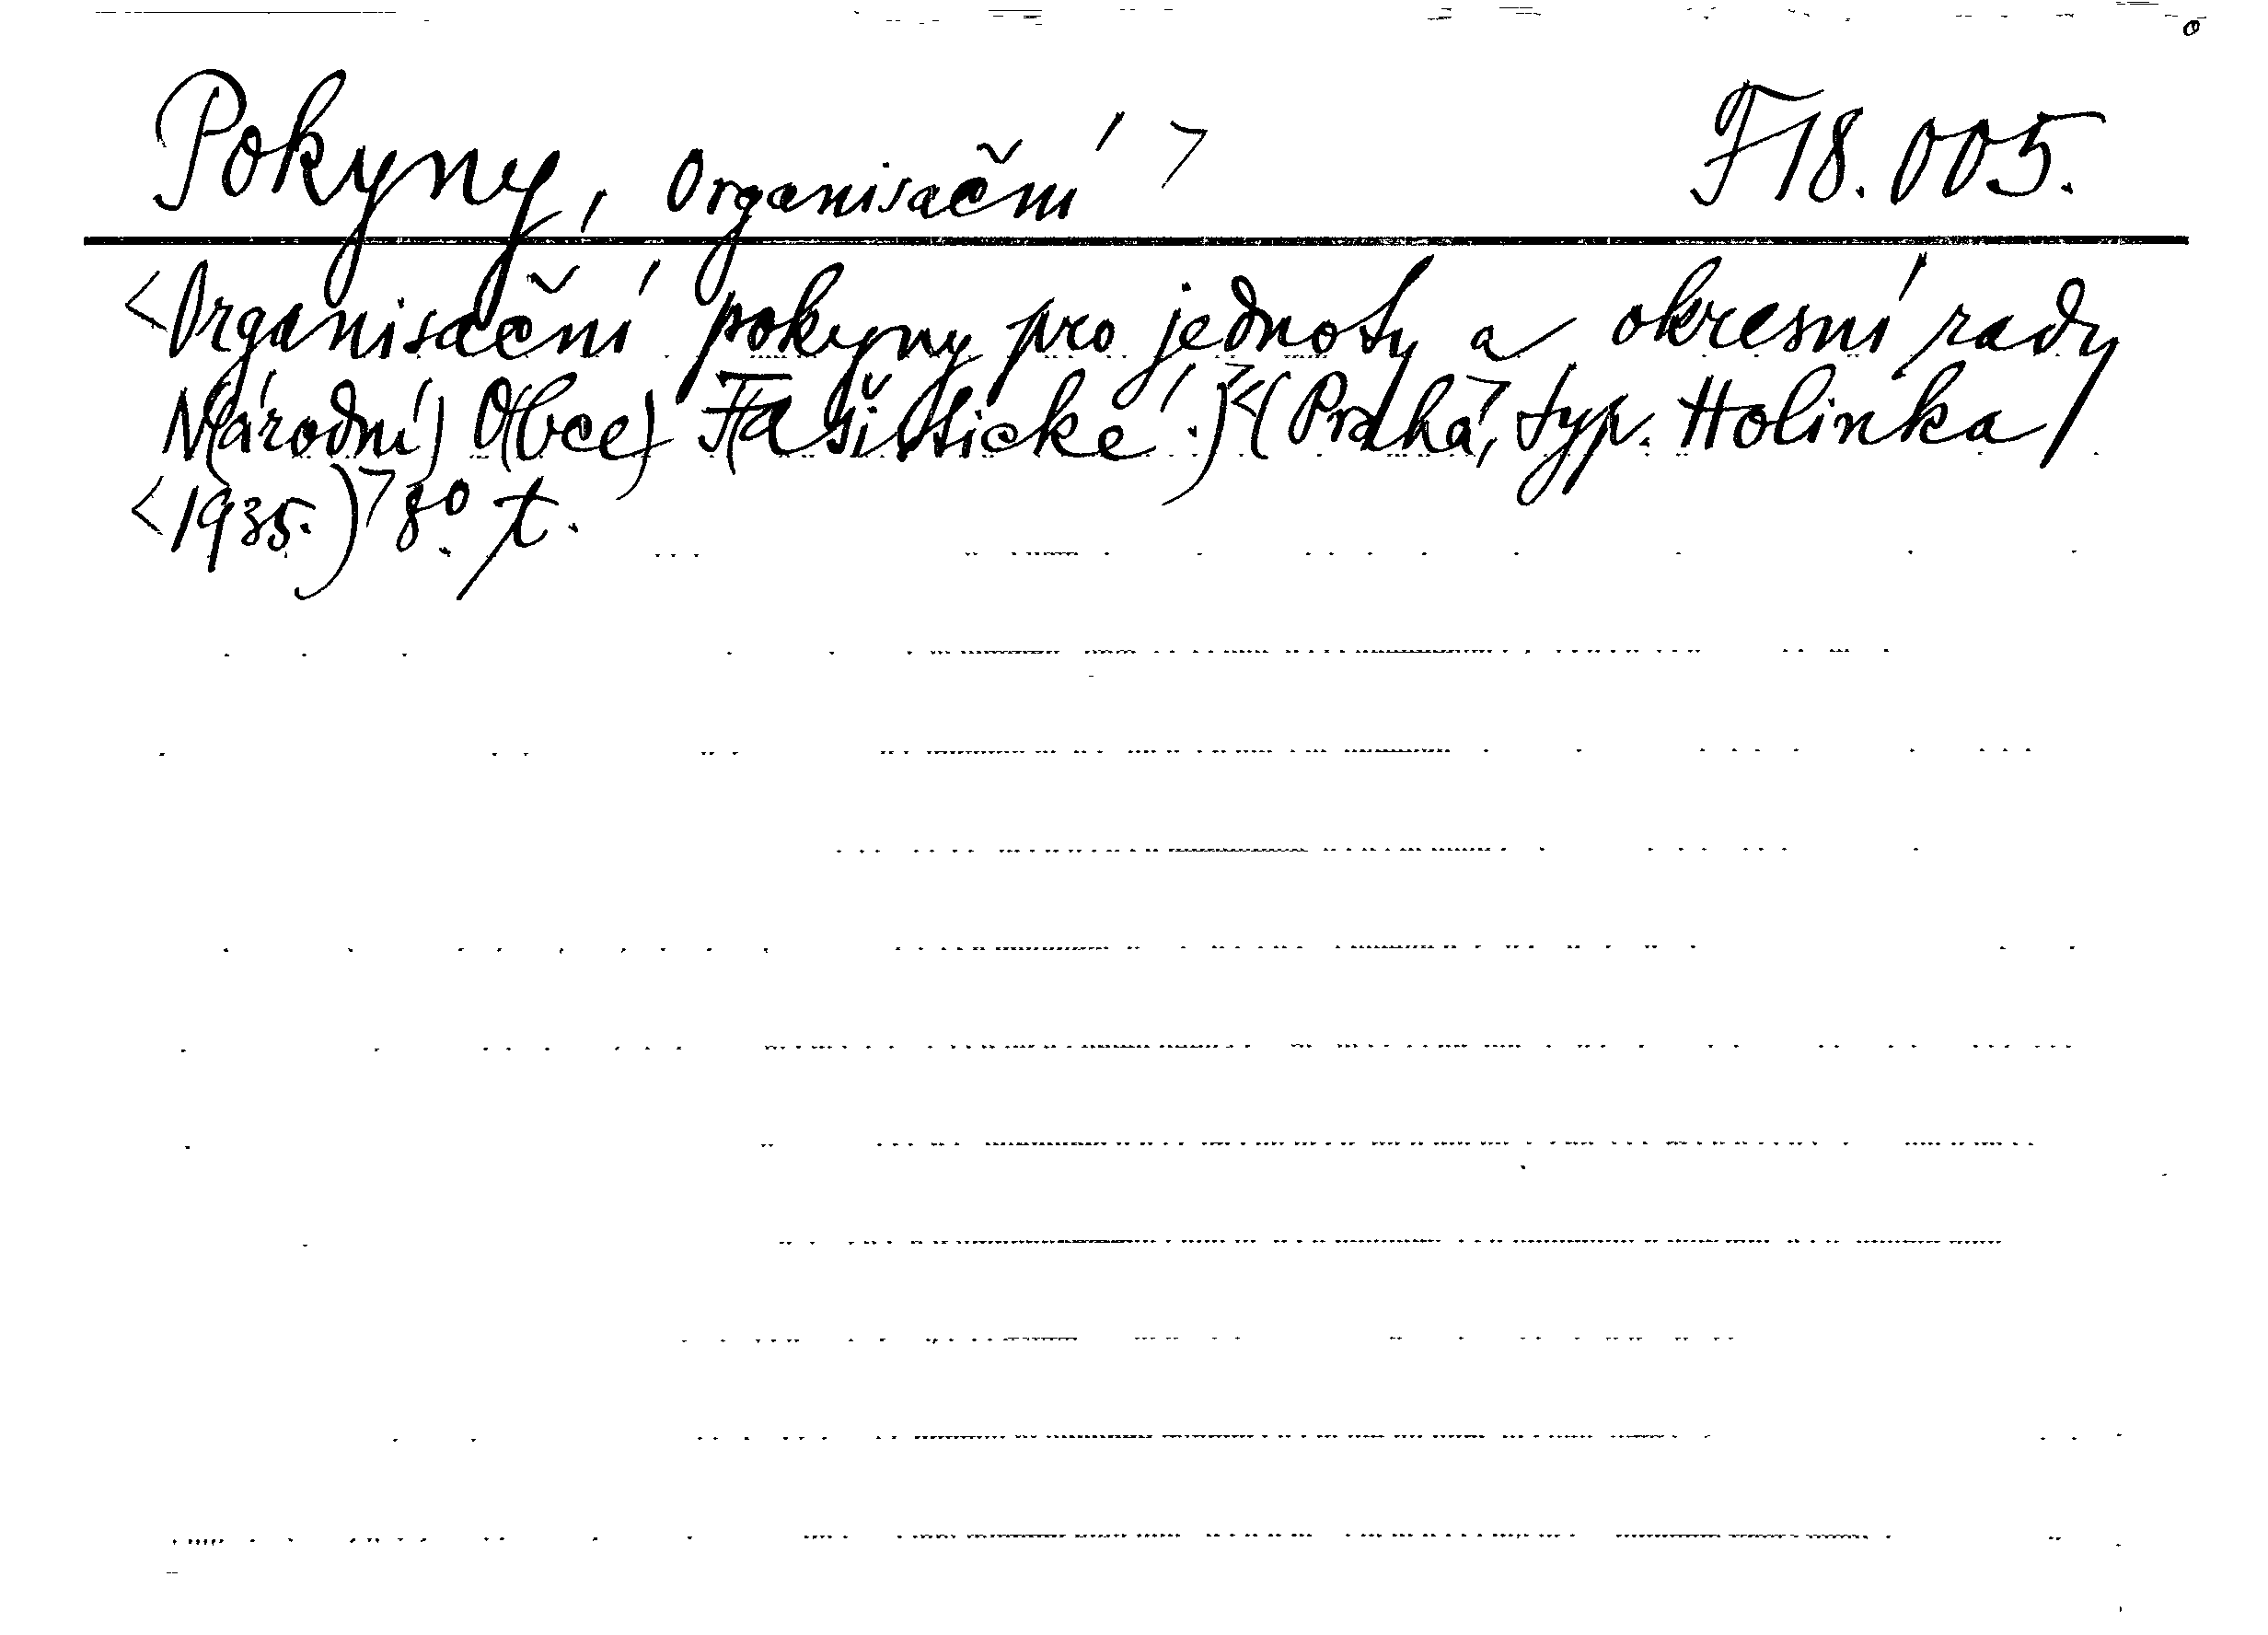 Pokyny, organisační > F 18.005.
<Organisační pokyny pro jednoty a okresní rady
N(árodní) O(bce) F(ašistické).><(Praha>, typ. Holinka)
<1935.)> 8º. t.